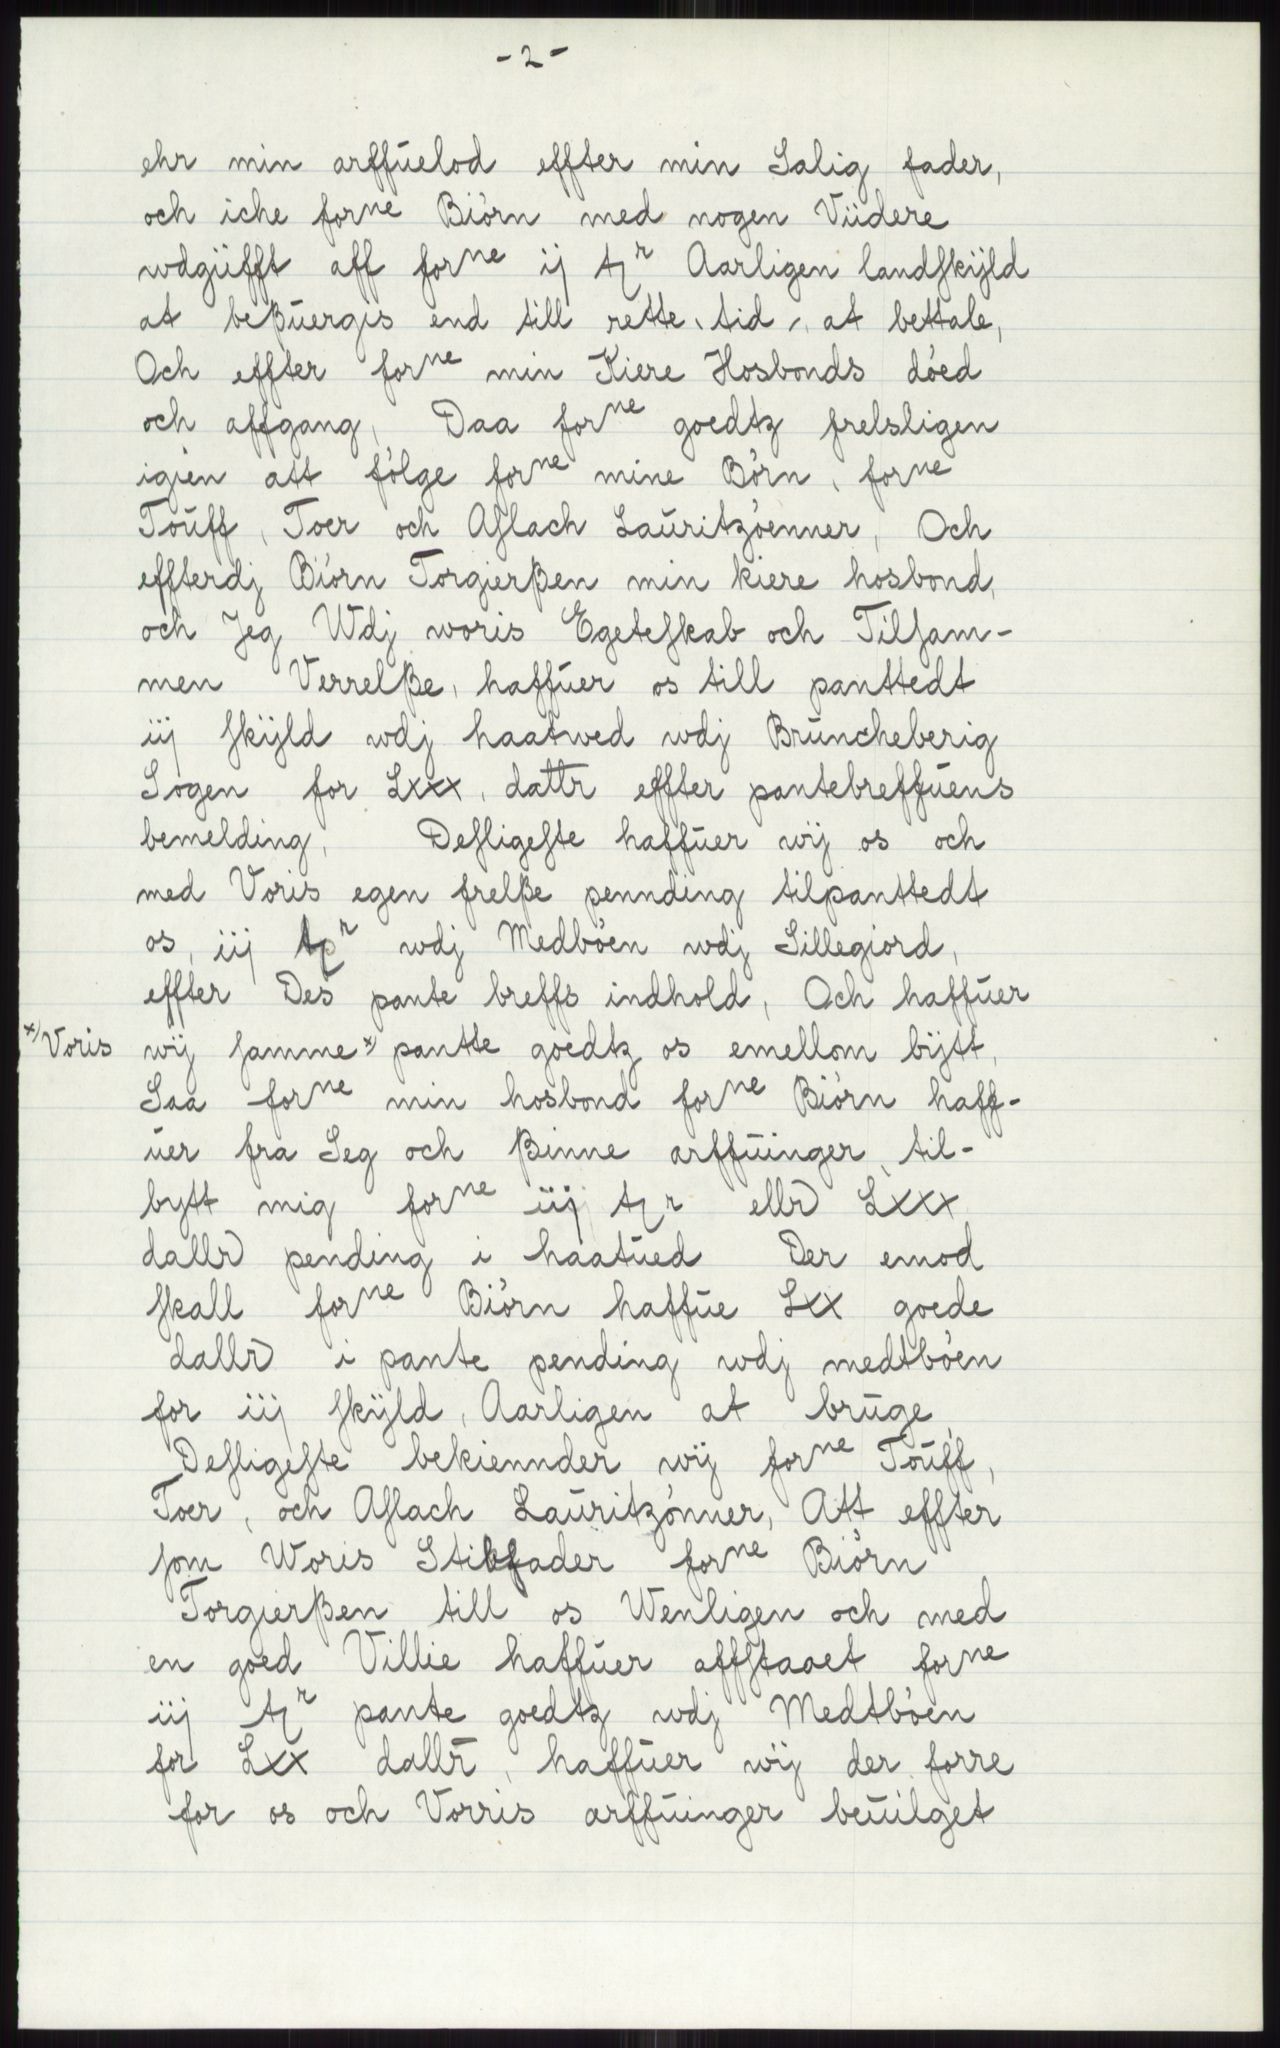 - 2 -
ehr min arffuelod effter min Salig fader,
och iche forne Biörn med nogen Viidere
wdgüfft aff forne ij tr Aarligen landskÿld
at beßuergis end till rette, tid, at bettale,
Och effter forne min Kiere Hosbonds döed
och affgang, Daa forne goedtz frelsligen
igien att fölge forne mine Börn, forne
Touff, Toer och Aslach Lauritzöenner, Och
effterdj Biörn Torgierßen min kiere hosbond,
och Jeg Wdj woris Egteskab och Tilsam-
men Verrelße, haffuer os till panttedt
iij skÿld wdj haatwed wdj Bruncheberig
Sogen for Lxxx, dallr effter pantebreffuens
bemelding, Desligeste haffuer wij os och
med Voris egen frelße pennding tilpanttedt
os, iij tr wdj Medböen wdj Sillegiord,
effter Des pante breffs indhold, Och haffuer
x) Voris wÿ samme x) pantte goedtz os emellom bÿtt,
Saa forne min hosbond forne Biörn haff-
uer fra Seg och ßinne arffuinger, til-
bytt mig forne iij tr ellr Lxxx
dallr pending i haatued Der emod
skall forne Biörn haffue Lxx goede
dallr i pante pending wdj medtböen
for iij skÿld, Aarligen at bruge,
Desligeste bekiennder wÿ forne Touff,
Toer, och Aslach Lauritzönner, Att effter
som Woris Stiffader forne Biörn
Torgierßen till os Wenligen och med
en goed Villie haffuer affstaaet forne
iij tr pante goedtz wdj Medtböen
for Lxx dallr, haffuer wÿ der forre
for os och Vorris arffuinger beuilget